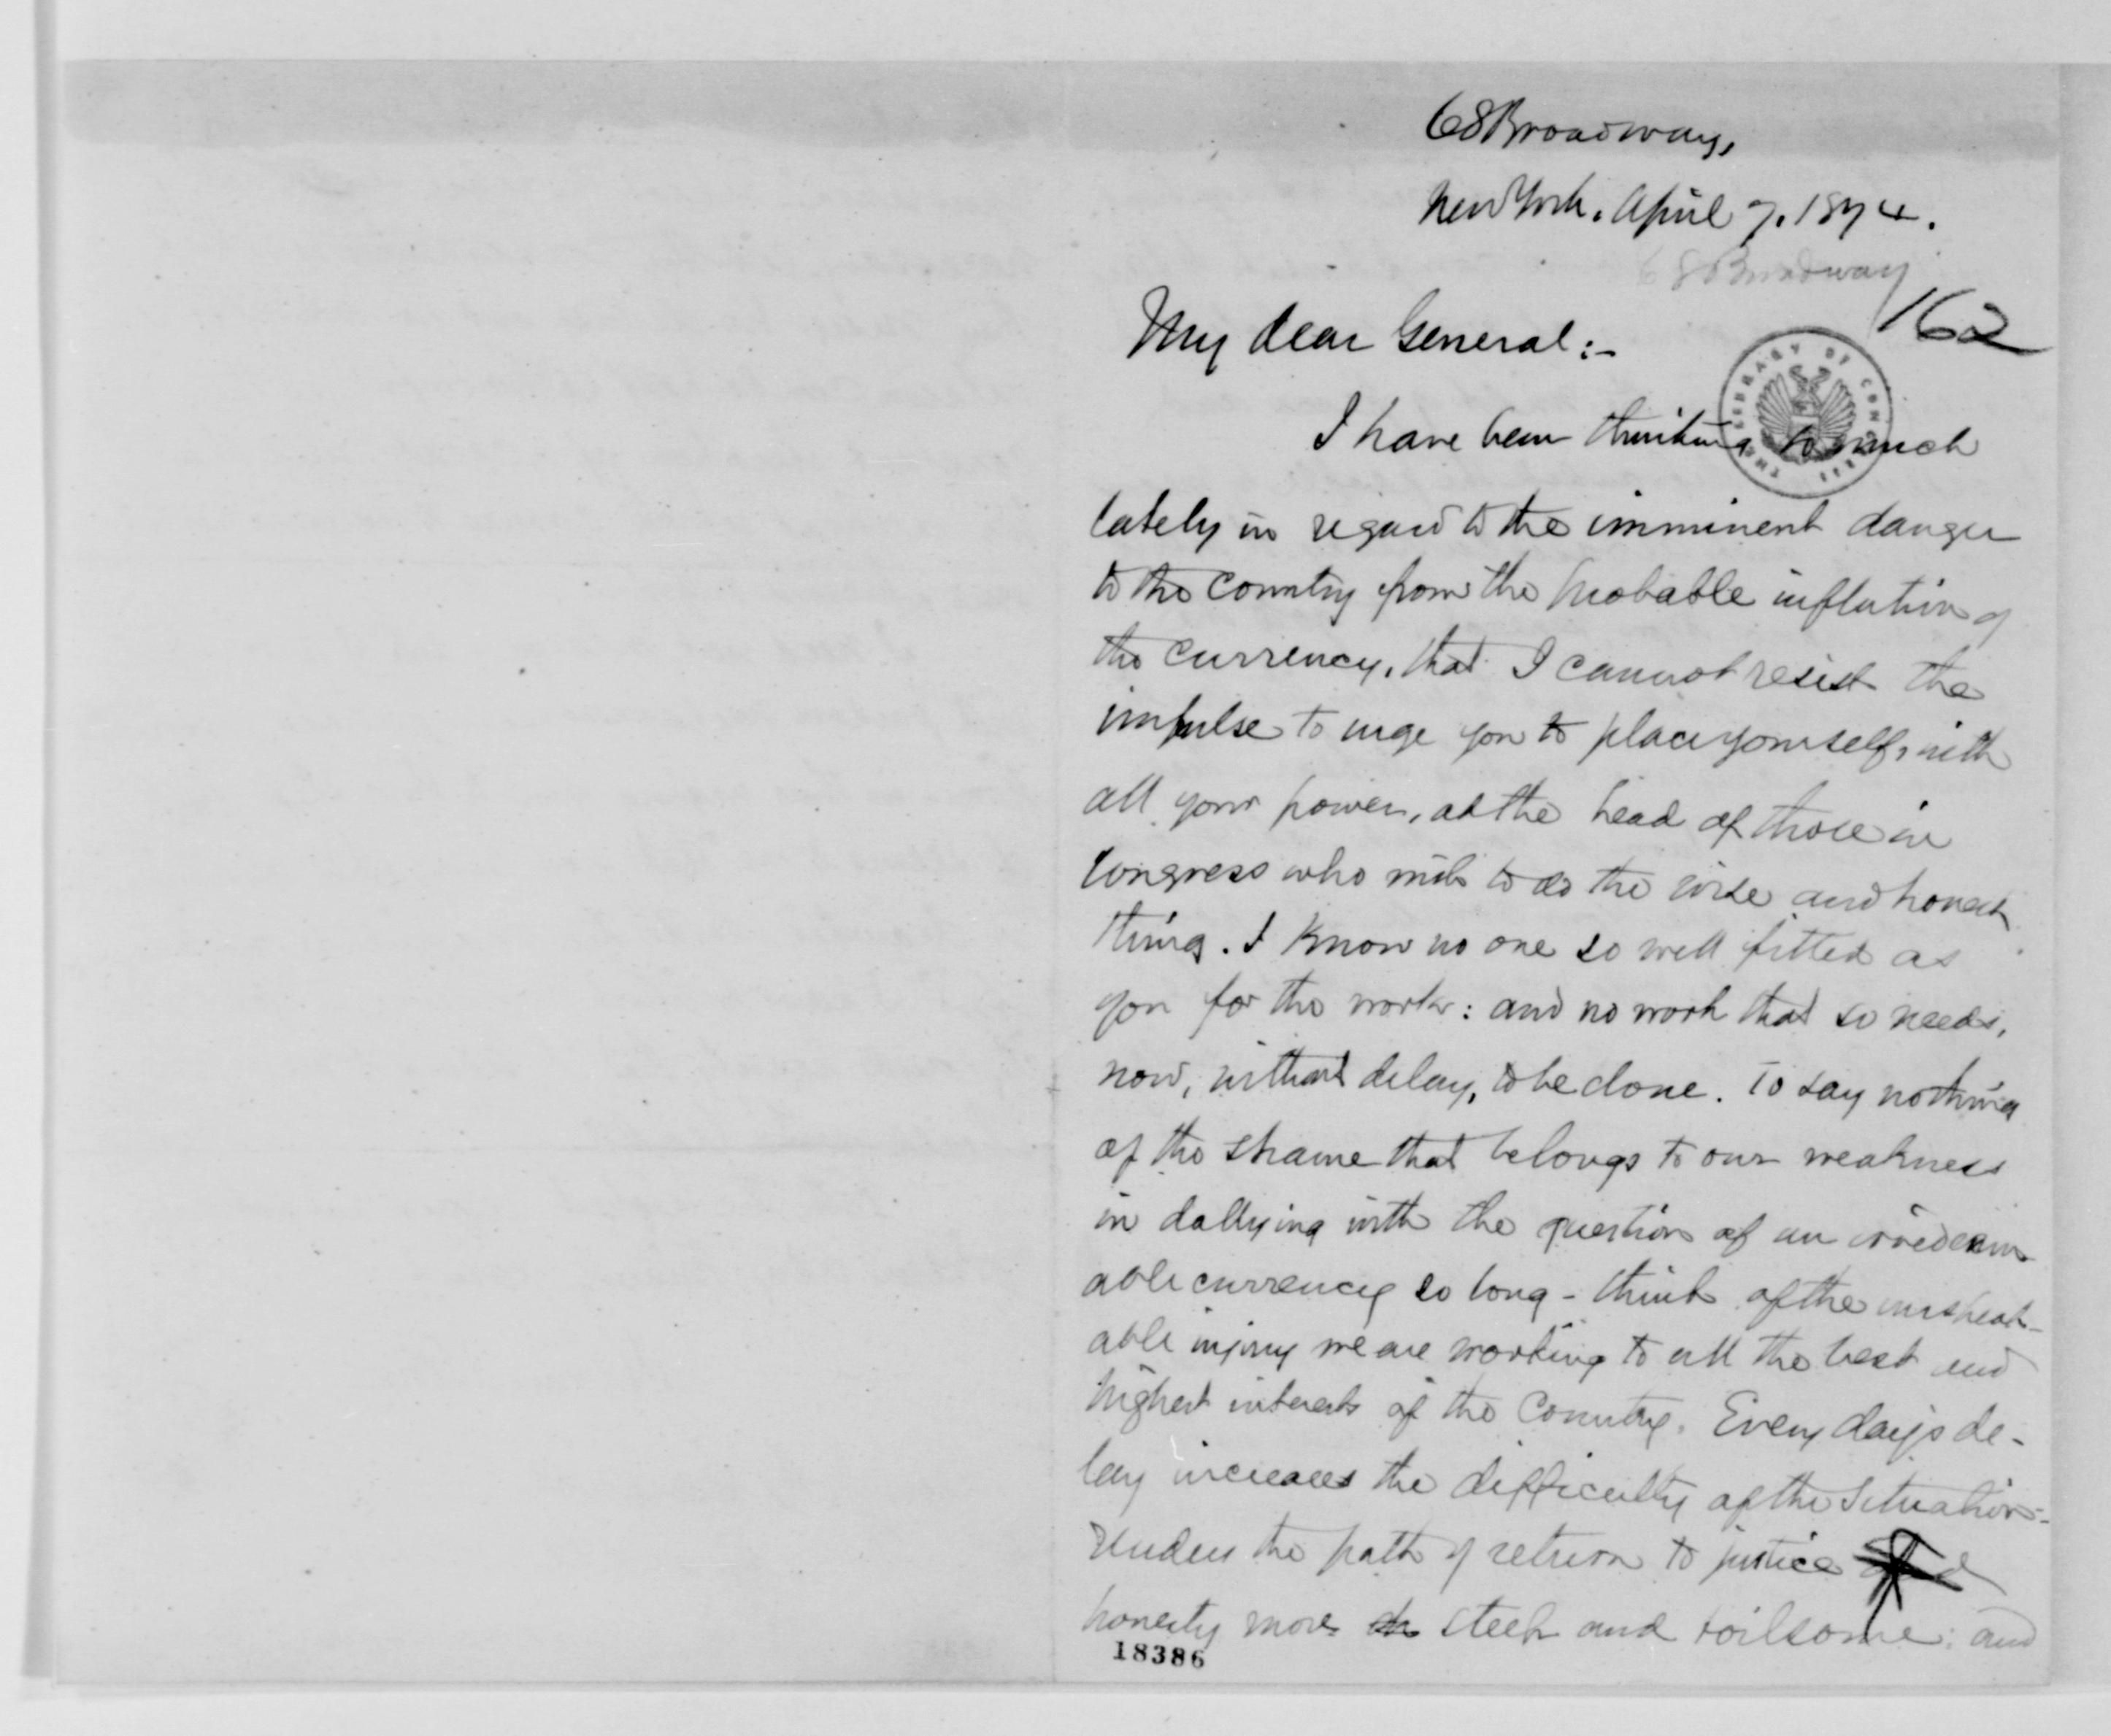 68 Broadway,
New York. April 7. 1874.
68 Broadway
162
My dear General:-
THE LIBRARY OF CONGRESS
I have been thinking so much
lately in regard to the imminent danger
to the country from the probable inflation of
the currency, that I cannot resist the
impulse to urge you to place yourself, with
all your power, at the head of those in
Congress who wish to do the wise and honest
thing. I know no one so well fitted as
you for the work: and no work that so needs,
now, without delay, to be done. To say nothing
of the shame that belongs to our weakness
in dallying with the question of an irredeem
able currency so long - think of the unspeak-
able injury we are working to all the best and
highest interests of the Country. Every day's de-
lay increases the difficulty of the situation-
renders the path of return to justice and
honesty more steep and toilsome: and
18386